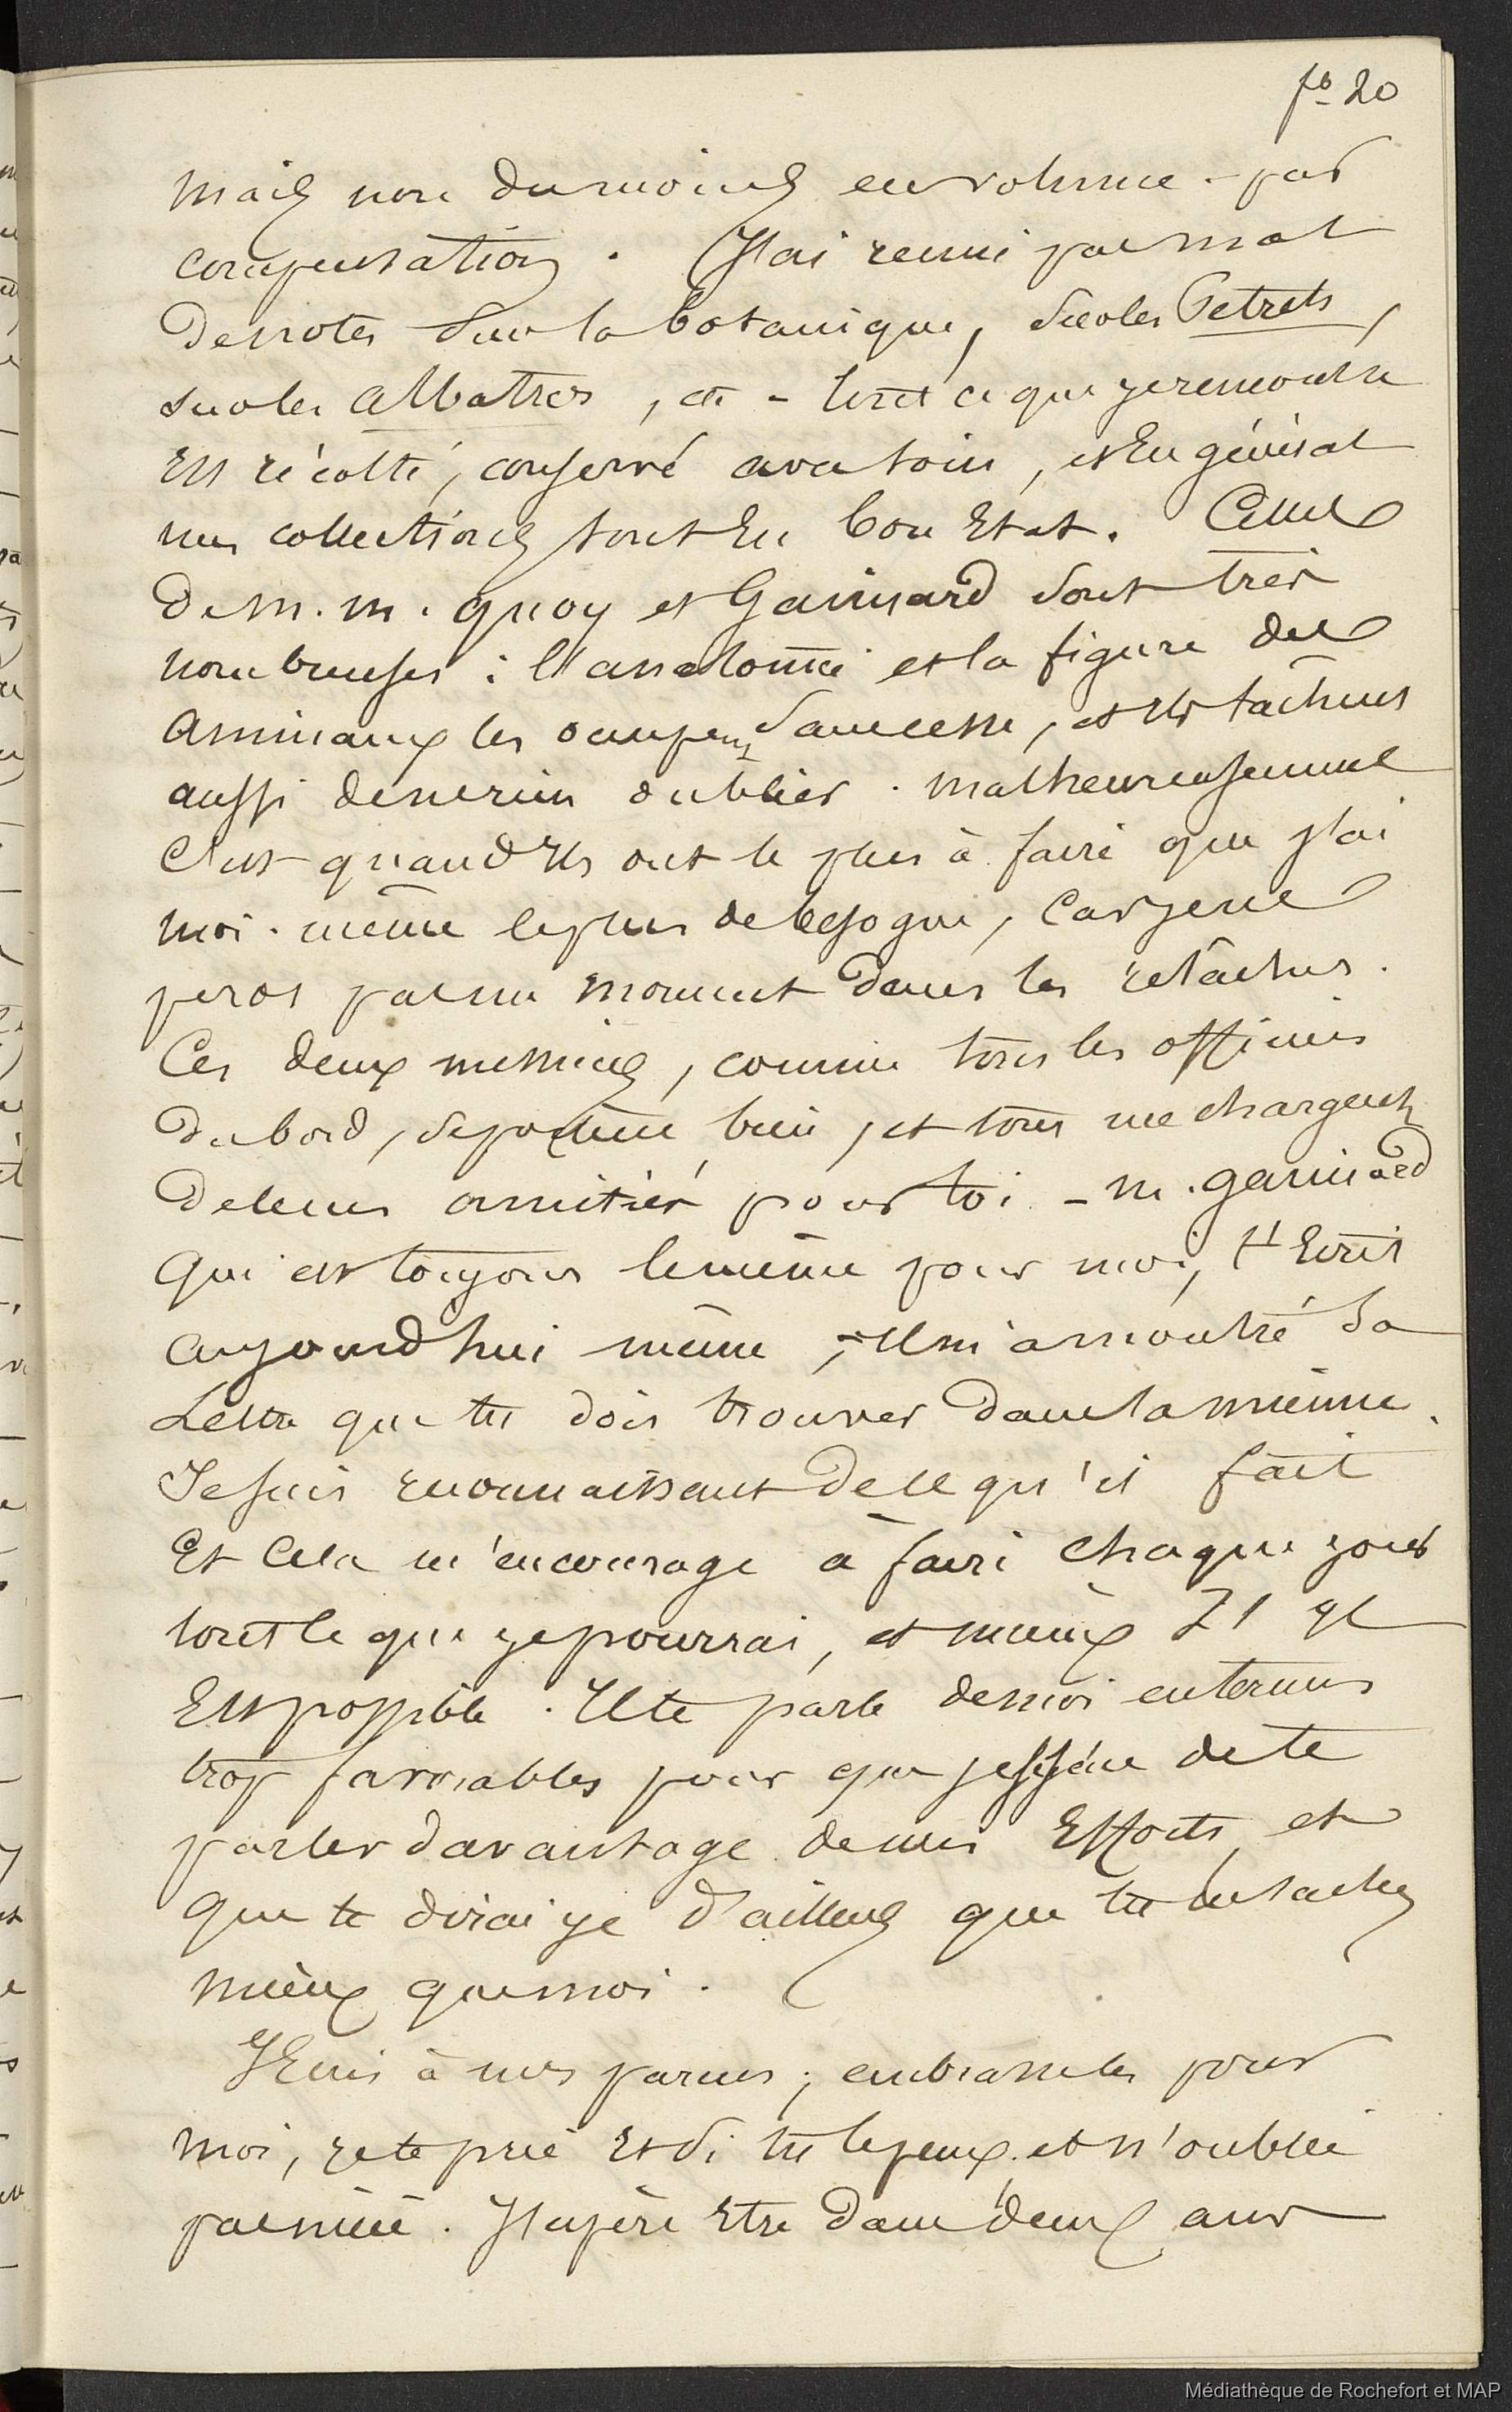 fo 20
mais non du moins en volume - par
compensation. J'ai réuni pas mal
de notes sur la botanique, sur les Petrels,
sur les Albatros, etc - tout ce que je rencontre
Est récolté, conservé avec soin, et En général
mes collections sont En bon Etat. Celles
de m. m. quoy et Gaimard sont très
nombreuses : l'anatomie et la figure des
animaux les occupent sans cesse, et Ils tachent
aussi de ne rien oublier. malheureusement
c'est quand Ils ont le plus à faire que j'ai
moi-même le plus de besogne, car je ne
perds pas un moment dans les relâches.
Ces deux messieurs, comme tous les officiers
du bord, se portent bien, et tous me chargent
de leurs amitiés pour toi - m. gaimard
qui est toujours le même pour moi, t'Ecrit
aujourd'hui même ; Il m'a montré sa
Lettre que tu dois trouver dans la mienne.
Je suis reconnaissant de ce qu'il fait
Et Cela m'encourage à faire chaque jour
tout ce que je pourrai, et mieux s'Il
Est possible. Il te parle de moi en termes
trop favorables pour que j'essaie de te
parler davantage de mes Efforts et
que te dirai je d'ailleurs que tu ne saches
mieux que moi.
J'Ecris à mes parens ; embrasse les pour
moi, je te prie Et si tu le peux et n'oublie
pas mimi. J'espère Etre dans deux ans
Médiathèque de Rochefort et MAP